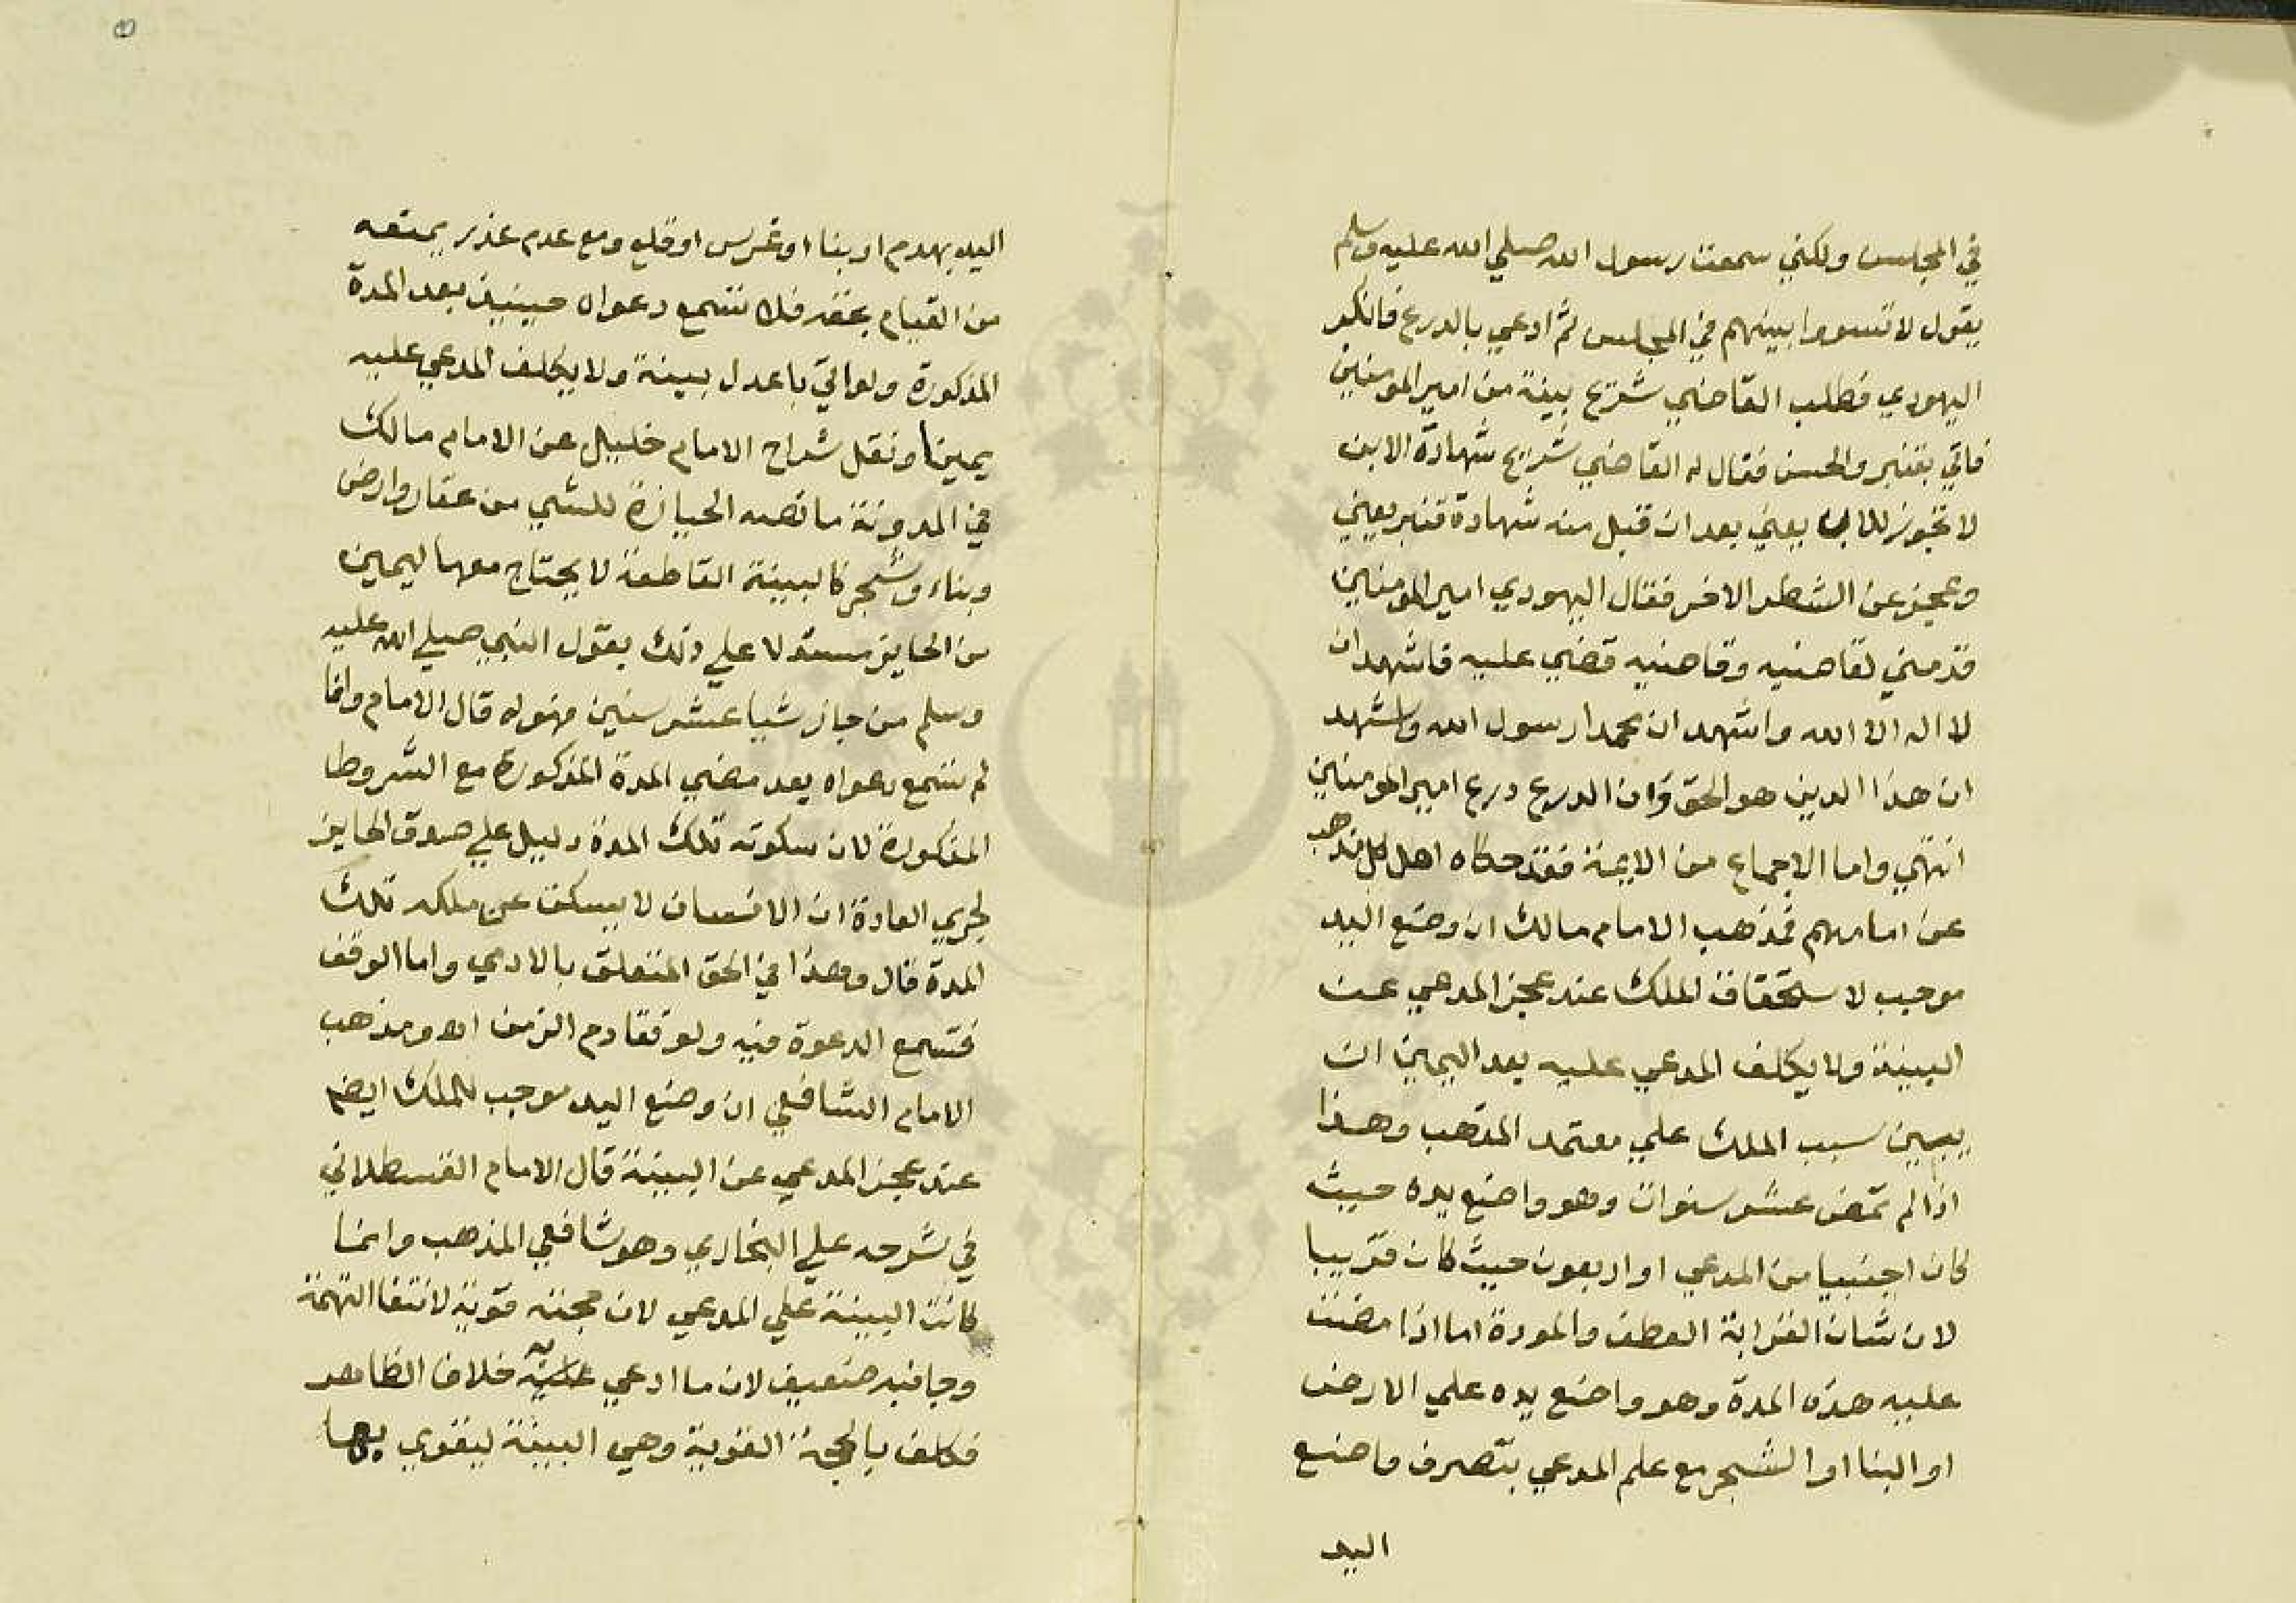 في المجلس ولكني سمعت رسول الله صلي الله عليه وسلم
يقول لا تسووا بينهم في المجلس ثم ادعي بالدرع فانكر
اليهودي فطلب القاضي شريح بينة من امير المومنين
فاتي بقنبر والحسن فقال له القاضي شريح شهادة الابن
لا تجوز للاب يعني بعد ان قبل منه شهادة قنبر يعني
وعجز عن الشطر الاخر فقال اليهودي امير المومنين
قدمني لقاضيه وقاضيه قضي عليه فاشهد ان
لا اله الا الله واشهد ان محمدا رسول الله واشهد
ان هذا الدين هو الحق وان الدرع درع امير المومنين
انتهي واما الاجماع من الايمة فقد حكاه اهل كل مذهب
عن امامهم فمذهب الامام مالك ان وضع اليد
موجب لاستحقاق الملك عند عجز المدعي عن
البينة ولا يكلف المدعي عليه بعد اليمين ان
يبين سبب الملك علي معتمد المذهب وهذا
اذا لم تمض عشر سنوات وهو واضع يده حيث
كان اجنبيا من المدعي او اربعون حيث كان قريبا
لان شان القرابة العطف والمودة اما اذا مضت
عليه هذه المدة وهو واضع يده علي الارض
او البنا او الشجر مع علم المدعي بتصرف واضع
اليد
اليد بهدم او بنا او غرس او قلع ومع عدم عذر يمنعه
من القيام بحقه فلا تسمع دعواه حينيذ بعد المدة
المذكورة ولو اتي باعدل بينة ولا يكلف المدعي عليه
يمينا ونقل شراح الامام خليل عن الامام مالك
في المدونة ما نصه الحيازة للشي من عقار وارض
وبناء وشجر كالبينة القاطعة لا يحتاج معها ليمين
من الحايز مستدلا علي ذلك بقول النبي صلي الله عليه
وسلم من حاز شيا عشر سنين فهو له قال الامام وانما
لم تسمع دعواه بعد مضي المدة المذكورة مع الشروط
المذكورة لان سكوته تلك المدة دليل علي صدق الحايز
لجري العادة ان الانسان لا يسكت عن ملكه تلك
المدة قال وهذا في الحق المتعلق بالادمي واما الوقف
فتسمع الدعوة فيه ولو تقادم الزمن اه ومذهب
الامام الشافعي ان وضع اليد موجب للملك ايضا
عند عجز المدعي عن البينة قال الامام القسطلاني
في شرحه علي البخاري وهو شافعي المذهب وانما
كانت البينة علي المدعي لان حجته قوية لانتفا التهمة
وجانبه ضعيف لان ما ادعي خلاف الظاهر
فكلف بالحجة القوية وهي البينة ليقوي بها